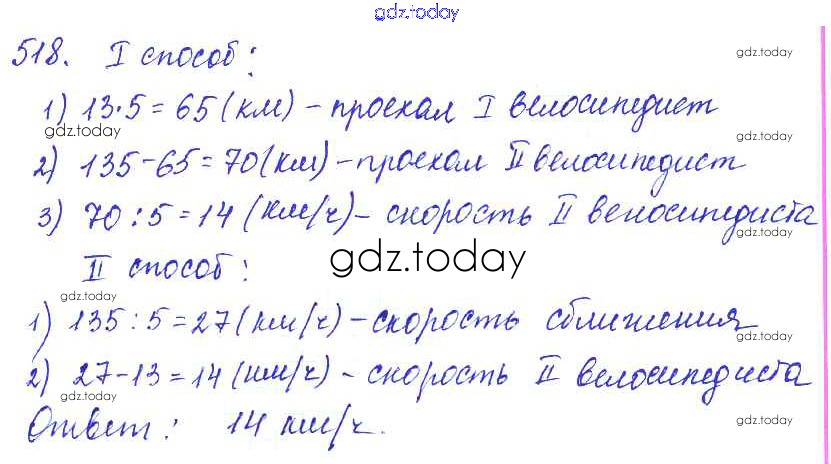 gdz.today
518. I способ:
gdz.today
1) 13·5=65(км) - проехал I велосипедист
gdz.today
gdz.today
2) 135-65=70(км) - проехал II велосипедист
3) 70:5=14(км/ч) - скорость II велосипедиста
gdz.today
II способ:
gdz.today
gdz.today
1) 135:5=27(км/ч) - скорость сближения
gdz.today
2) 27-13=14(км/ч) - скорость II велосипедиста
gdz.today
Ответ: 14 км/ч.
gdz.today